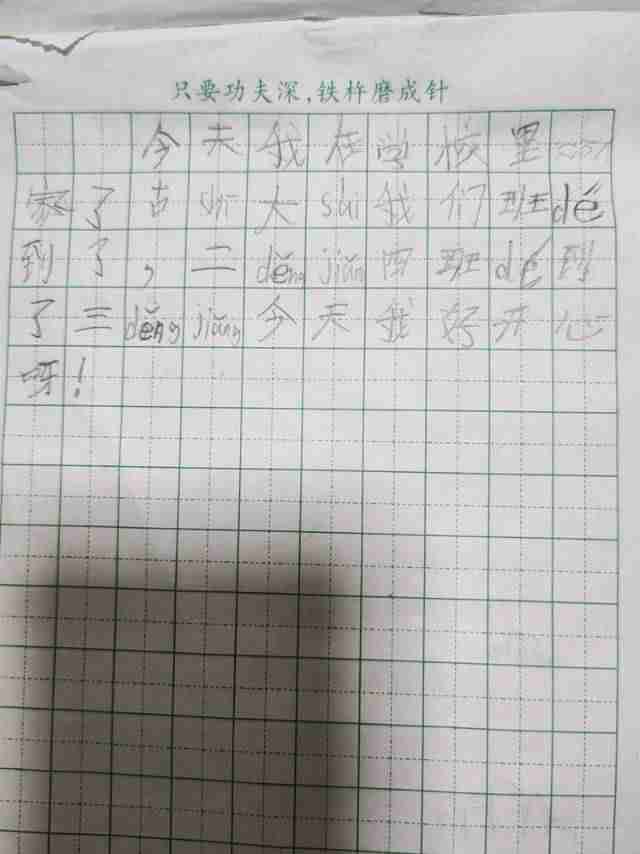 只要功夫深,铁杵磨成针
今天我在学校里
家了古shī大sài我们班dé
到了,二děng jiǎng四班dé到
了三děng jiǎng今天我好开心
呀!